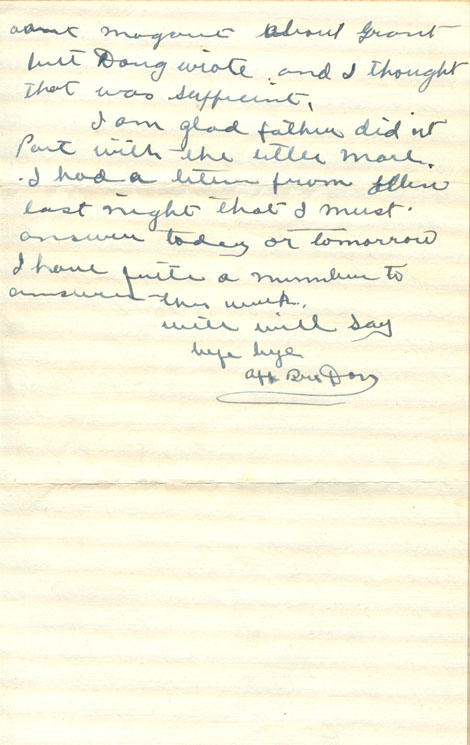 aunt magaut about Grant
but Doug wrote and I thought
that was sufficint,
I am glad father did nt
Part with the little mare.
I had a letter from Ellen
last night that I must
answer today or tomorrow
I have quite a number to
answer this week.
well will say
bye bye
Aff Bro Don